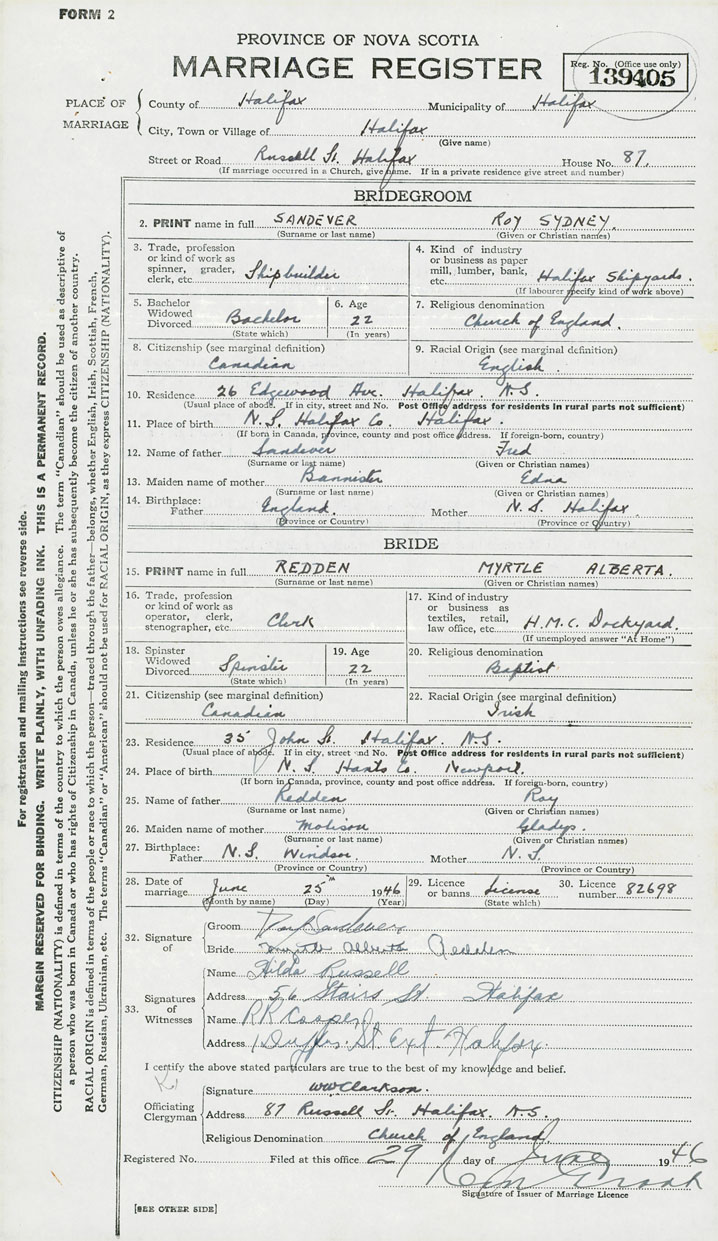 FORM 2
PROVINCE OF NOVA SCOTIA
MARRIAGE REGISTER
Reg. No. (Office use only)
139405
PLACE OF MARRIAGE
County of Halifax Municipality of Halifax
City, Town or Village of Halifax
(Give name)
Street or Road Russell St. Halifax House No. 87.
(If marriage occurred in a Church, give name. If in a private residence give street and number)
BRIDEGROOM
2. PRINT name in full SANDEVER ROY SYDNEY.
(Surname or last name) (Given or Christian names)
3. Trade, profession or kind of work as spinner, grader, clerk, etc. Shipbuilder
4. Kind of industry or business as paper mill, lumber, bank, etc. Halifax Shipyards.
(If labourer specify kind of work above)
5. Bachelor Widowed Divorced Bachelor
(State which)
6. Age 22
(In years)
7. Religious denomination
Church of England.
8. Citizenship (see marginal definition)
Canadian
9. Racial Origin (see marginal definition)
English.
10. Residence 26 Edgewood Ave. Halifax. N.S.
(Usual place of abode. If in city, street and No. Post Office address for residents in rural parts not sufficient)
11. Place of birth N.S. Halifax Co. Halifax.
(If born in Canada, province, county and post office address. If foreign-born, country)
12. Name of father Sandever Fred
(Surname or last name) (Given or Christian names)
13. Maiden name of mother Bannister Edna
(Surname or last name) (Given or Christian names)
14. Birthplace: Father England. Mother N.S. Halifax
(Province or Country) (Province or Country)
BRIDE
15. PRINT name in full REDDEN MYRTLE ALBERTA.
(Surname or last name) (Given or Christian names)
16. Trade, profession or kind of work as operator, clerk, stenographer, etc. Clerk
17. Kind of industry or business as textiles, retail, law office, etc. H.M.C. Dockyard.
(If unemployed answer "At Home")
18. Spinster Widowed Divorced Spinster
(State which)
19. Age 22
(In years)
20. Religious denomination
Baptist
21. Citizenship (see marginal definition)
Canadian
22. Racial Origin (see marginal definition)
Irish
23. Residence 35 John St. Halifax. N.S.
(Usual place of abode. If in city, street and No. Post Office address for residents in rural parts not sufficient)
24. Place of birth N.S. Hants Co. Newport.
(If born in Canada, province, county and post office address. If foreign-born, country)
25. Name of father Redden Roy
(Surname or last name) (Given or Christian names)
26. Maiden name of mother Molison Gladys.
(Surname or last name) (Given or Christian names)
27. Birthplace: Father N.S. Windsor. Mother N.S.
(Province or Country) (Province or Country)
28. Date of marriage June 25th 1946
(Month by name) (Day) (Year)
29. Licence or banns License
(State which)
30. Licence number 82698
32. Signature of
Groom Roy Sandever
Bride Myrtle Alberta Redden
33. Signatures of Witnesses
Name Hilda Russell
Address 56 Stairs St Halifax
Name RR Cooper
Address Duffus. St Ext. Halifax.
I certify the above stated particulars are true to the best of my knowledge and belief.
Officiating Clergyman
Signature WW Clarkson.
Address 87 Russell St. Halifax. N.S.
Religious Denomination Church of England.
Registered No. Filed at this office 29 day of June 1946
Signature of Issuer of Marriage Licence
[SEE OTHER SIDE]
For registration and mailing instructions see reverse side.
MARGIN RESERVED FOR BINDING. WRITE PLAINLY, WITH UNFADING INK. THIS IS A PERMANENT RECORD.
CITIZENSHIP (NATIONALITY) is defined in terms of the country to which the person owes allegiance. The term "Canadian" should be used as descriptive of
a person who was born in Canada or who has rights of Citizenship in Canada, unless he or she has subsequently become the citizen of another country.
RACIAL ORIGIN is defined in terms of the people or race to which the person—traced through the father—belongs, whether English, Irish, Scottish, French,
German, Russian, Ukrainian, etc. The terms "Canadian" or "American" should not be used for RACIAL ORIGIN, as they express CITIZENSHIP (NATIONALITY).